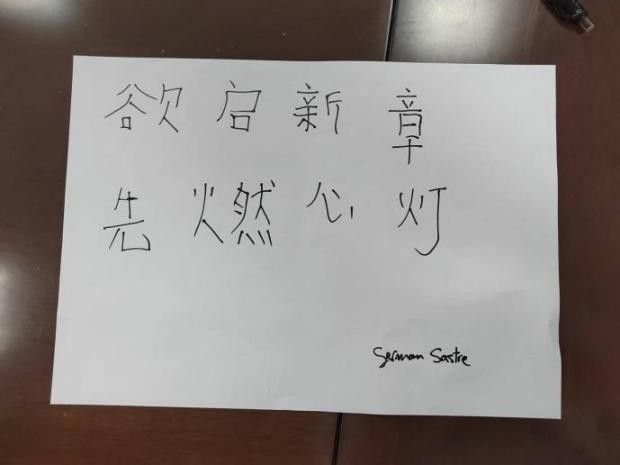 欲启新章
先燃心灯
German Sastre